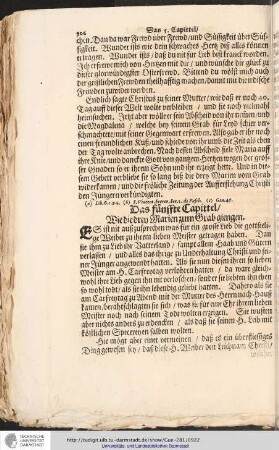 506 Das 5. Capittel/
chen. Dan da war Frewd uber Frewd/ und Süssigkeit über Süs-
sigkeit. Wunder ists wie dein schwaches Herz diß alles können
ertragen. Wunder ists/ daß du nit für Lieb bist kranck worden.
Ich erfrewe mich von Herzen mit dir/ und wünsche dir glück zu
dieser glorwürdigster Osterfrewd. Bittend du wölst mich auch
der geistlichen Frewden theilhafftig machen/ damit ich die eitele
Frewden zuwider werden.
Endlich sagte Christus zu seiner Mutter/ wie daß er noch 40.
Tag auff dieser Welt wolte verbleiben/ und sie noch vielmahl
heimsuchen. Jetzt aber wölle er sein Abscheid von ihr nemen/ und
die Magdalena/ welche bey seinem Grab für Leyd schier ver-
schmachtete/ mit seiner Gegenwart erfrewen. Also gab ihr noch
einen freundlichen Kuß/ und scheidete von ihr umb die Zeit als eben
der Tag wolte anbrechen. Nach dessen Abscheid fiele Maria auff
ihre Knie/ und danckte Gott von gantzem Herzen wegen der gros-
ser Gnaden so er ihrem Sohn und ihr erzeigt hette. Und in die-
sem Gebett verbliebe sie so lang biß die drey Marien vom Grab
widerkamen/ und die fröliche Zeitung der Aufferstehung Christi
den Jüngern verkündigten.
Das fünffte Capittel/
Wie die drey Marien zum Grab giengen.
ES ist nit auszusprechen was für ein grosse Lieb die gottseli-
ge Weiber zu ihrem lieben Meister getragen haben. Dan
sie ihm zu Lieb ihr Vatterland/ sampt allem Haab und Gütern
verlassen/ und alles das ihrige zu Underhaltung Christi und sei-
ner Jünger angewendt hatten. Als sie nun diesen ihren so lieben
Meister am H. Carfreytag verlohren hatten/ da ware gleich-
wohl ihre Lieb gegen ihn mit verloschen/ sondern sie liebten ihn eben
so wohl todt/ als sie ihn lebendig geliebt hatten. Dahero als sie
am Carfreytag zu Abend mit der Mutter des Herrn nach Hauß
kamen/ berathschlagten sie sich/ was sie für eine Ehr ihrem lieben
Meister noch nach seinem Todt wolten erzeigen. Sie wusten
aber nichts anders zu erdencken/ als daß sie seinen H. Leib mit
köstlichen Spezereyen salben wolten.
Hie mögt aber einer vermeinen/ daß es ein überflüssiges
Ding gewesen sey/ daß diese H. Weiber den Leichnam Christi/